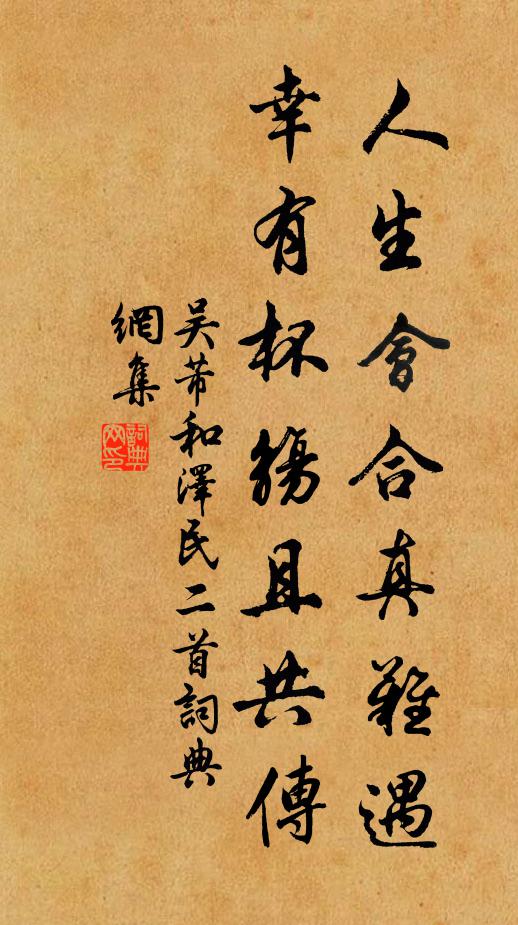 人生會合真難遇
幸有杯觴且共傳
吳芾和澤民二首詞典
網集
詞典
網印